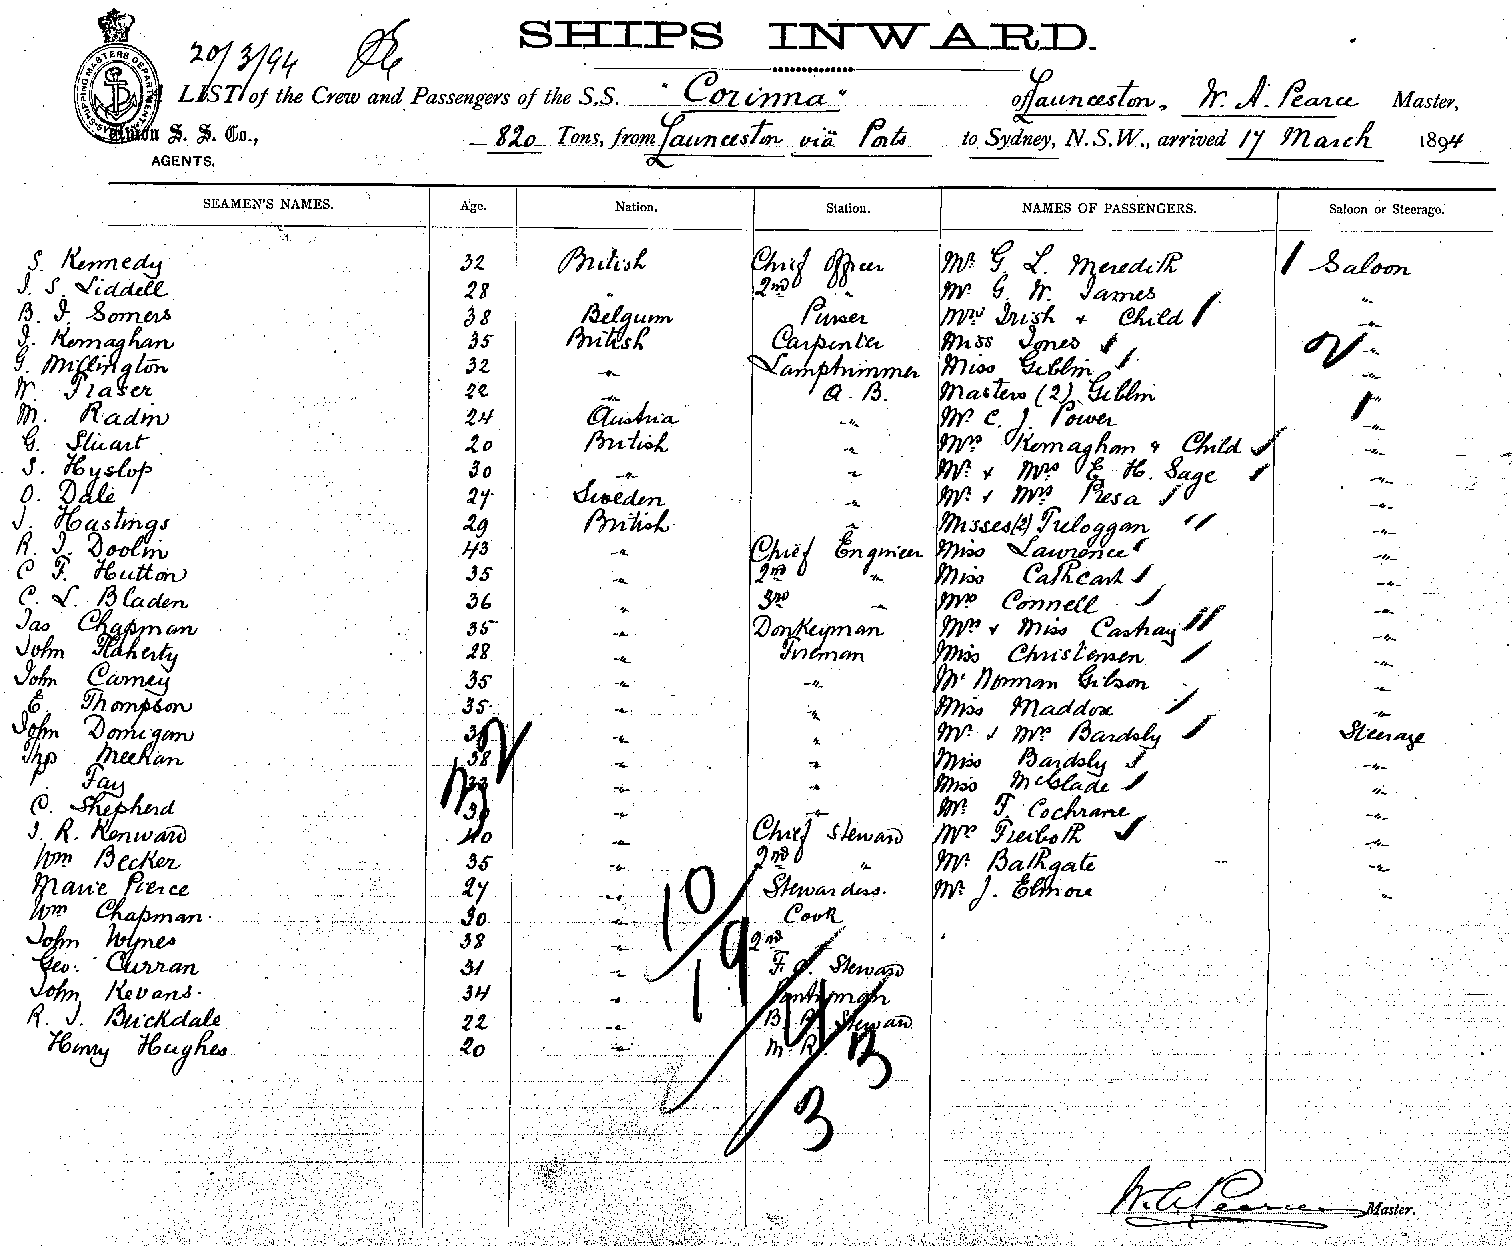 SHIPS INWARD.
20/3/94
SHIPPING MASTERS DEPARTMENT
LIST of the Crew and Passengers of the S.S. "Corinna" of Launceston, W. A. Pearce Master,
Union S. S. Co., 820 Tons, from Launceston via Ports to Sydney, N.S.W., arrived 17 March 1894
AGENTS.
SEAMEN'S NAMES. Age. Nation. Station. NAMES OF PASSENGERS. Saloon or Steerage.
S. Kennedy 32 British Chief Officer Mr G. L. Meredith 1 Saloon
J. S. Liddell 28 " 2nd " Mr G. W. James "
B. J. Somers 38 Belgum Purser Mrs Irish + Child "
J. Kernaghan 35 British Carpenter Miss Jones "
G. Millington 32 " Lamptrimmer Miss Giblin "
W. Fraser 22 " A. B. Masters (2) Giblin "
M. Radin 24 Austria " Mr C. J. Power "
G. Stuart 20 British " Mrs Kernaghan & Child "
S. Hyslop 30 " " Mr + Mrs E. H. Sage "
O. Dale 27 Sweden " Mr + Mrs Presa "
J. Hastings 29 British " Misses (2) Treloggan "
R. J. Doolin 43 " Chief Engineer Miss Lawrence "
C. F. Hutton 35 " 2nd " Miss Cathcart "
C. L. Bladen 36 " 3rd " Mrs Connell "
Jas Chapman 35 " Donkeyman Mrs + Miss Cashay "
John Flaherty 28 " Fireman Miss Christensen "
John Carney 35 " " Mr Norman Gilson "
E. Thompson 35 " " Miss Maddox "
John Domigan " " Mr + Mrs Bardsly Steerage
Thos Meehan 38 " " Miss Bardsly "
Fay 33 " " Miss McGlade "
C. Shepherd " " Mr F. Cochrane "
J. R. Kenward 40 " Chief Steward Mrs Freiboth "
Wm Becker 35 " 2nd " Mr Bathgate "
Marie Pierce 27 " Stewardess. Mr J. Elmore "
Wm Chapman 30 " Cook
John Wynes 38 " 2nd
Geo. Curran 31 " F. C. Steward
John Kevans 34 " Pantryman
R. J. Brickdale 22 " B. R. Steward
Henry Hughes 20 " M. R.
10
19
3
3
W. A. Pearce Master.